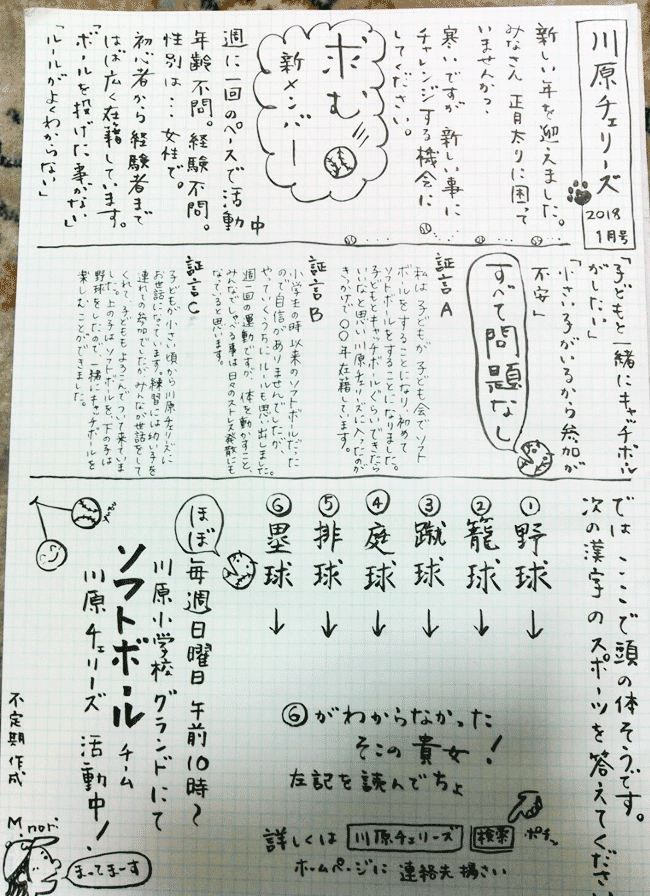 川原チェリーズ
2018
1月号
新しい年を迎えました。
みなさん 正月太りに困って
いませんか?
寒いですが 新しい事に
チャレンジする機会に
してください。
求む
新メンバー
週に一回のペースで活動中
年齢不問。経験不問。
性別は…女性で。
初心者から経験者まで
はば広く在籍しています。
「ボールを投げた事がない」
「ルールがよくわからない」
「子どもと一緒にキャッチボール
がしたい」
「小さい子がいるから参加が
不安」
すべて問題なし
証言A
私は子どもが子ども会でソフト
ボールをすることになり、初めて
ソフトボールをすることになりました。
子どもとキャッチボールぐらいできたら
いいなと思い川原チェリーズに入ったのが
きっかけで〇〇年在籍しています。
証言B
小学生の時以来のソフトボールだった
ので自信がありませんでしたが、
やっていくうちにルールも思い出しました。
週一回の運動ですが、体を動かすこと、
みんなでしゃべる事は日々のストレス発散にも
なっていると思います。
証言C
子どもが小さい頃から川原チェリーズに
お世話になっています。練習には幼い子を
連れての参加でしたがみんなが世話をして
くれて、子どももよろこんでついて来ていま
した。上の子はソフトボールを、下の子は
野球をしたので、一緒にキャッチボールを
楽しむことができました。
では ここで頭の体そうです。
次の漢字のスポーツを答えてください。
①野球→
②籠球→
③蹴球→
④庭球→
⑤排球→
⑥塁球→
⑥がわからなかった
そこの貴女!
左記を読んでちょ
詳しくは 川原チェリーズ 検索 ポチッ
ホームページに 連絡先掲さい
ほぼ
毎週日曜日 午前10時〜
川原小学校 グランドにて
ソフトボール チーム
川原チェリーズ 活動中!
不定期作成 M.nori
まってまーす